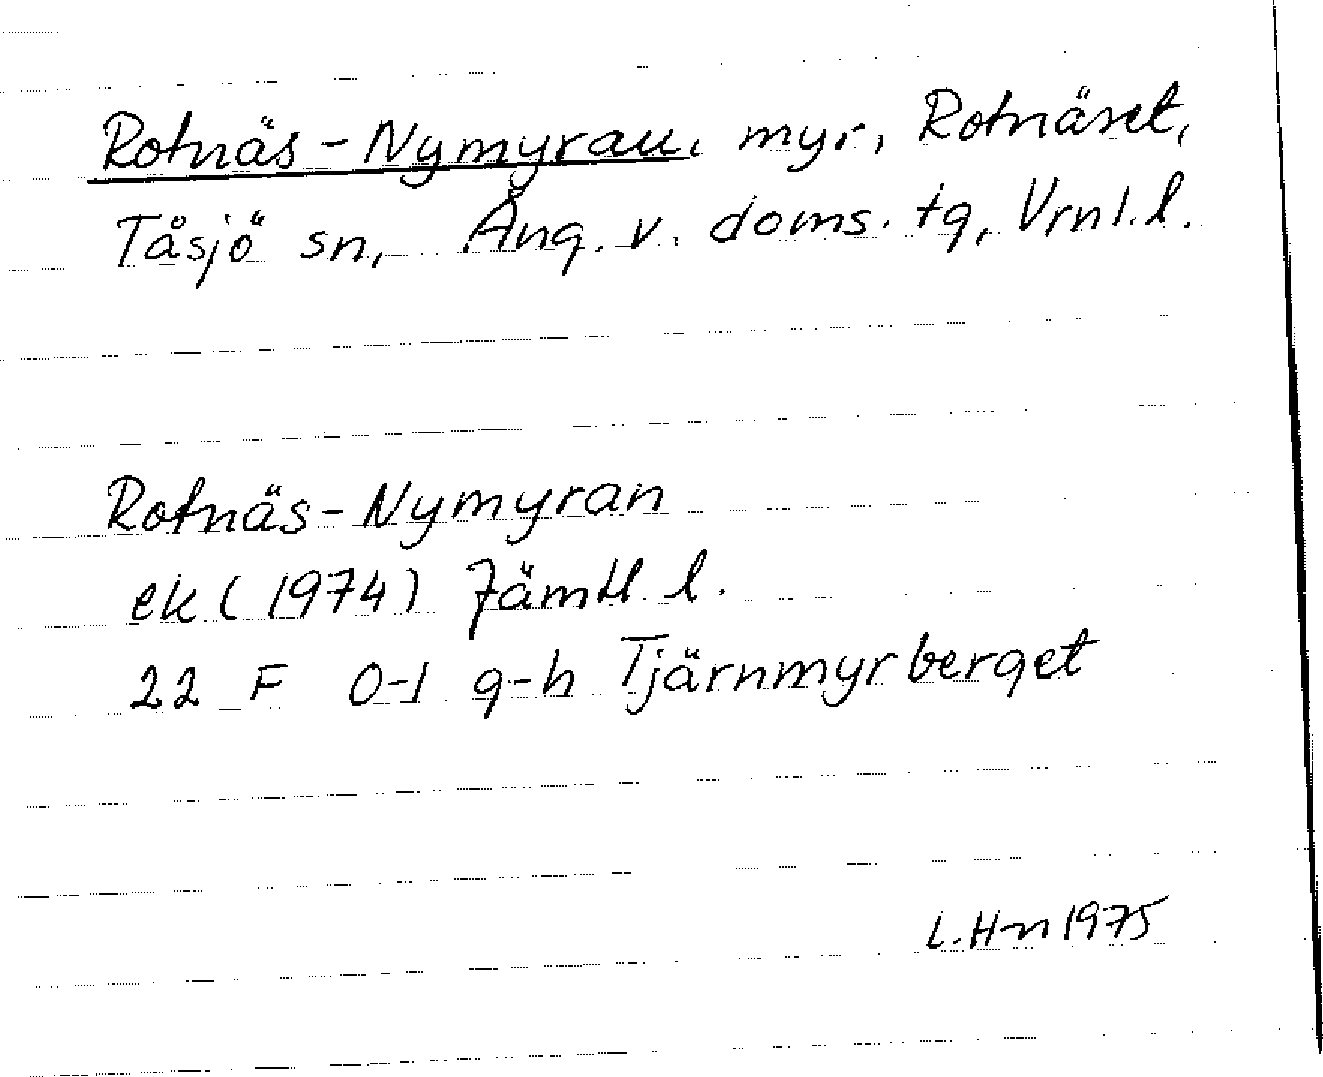 Rotnäs-Nymyran, myr, Rotnäset,
Tåsjö sn, Ång. v. doms. tg, Vrnl. l.
Rotnäs-Nymyran
ek (1974) Jämtl. l.
22 F 0-1 g-h Tjärnmyrberget
L. H-n 1975